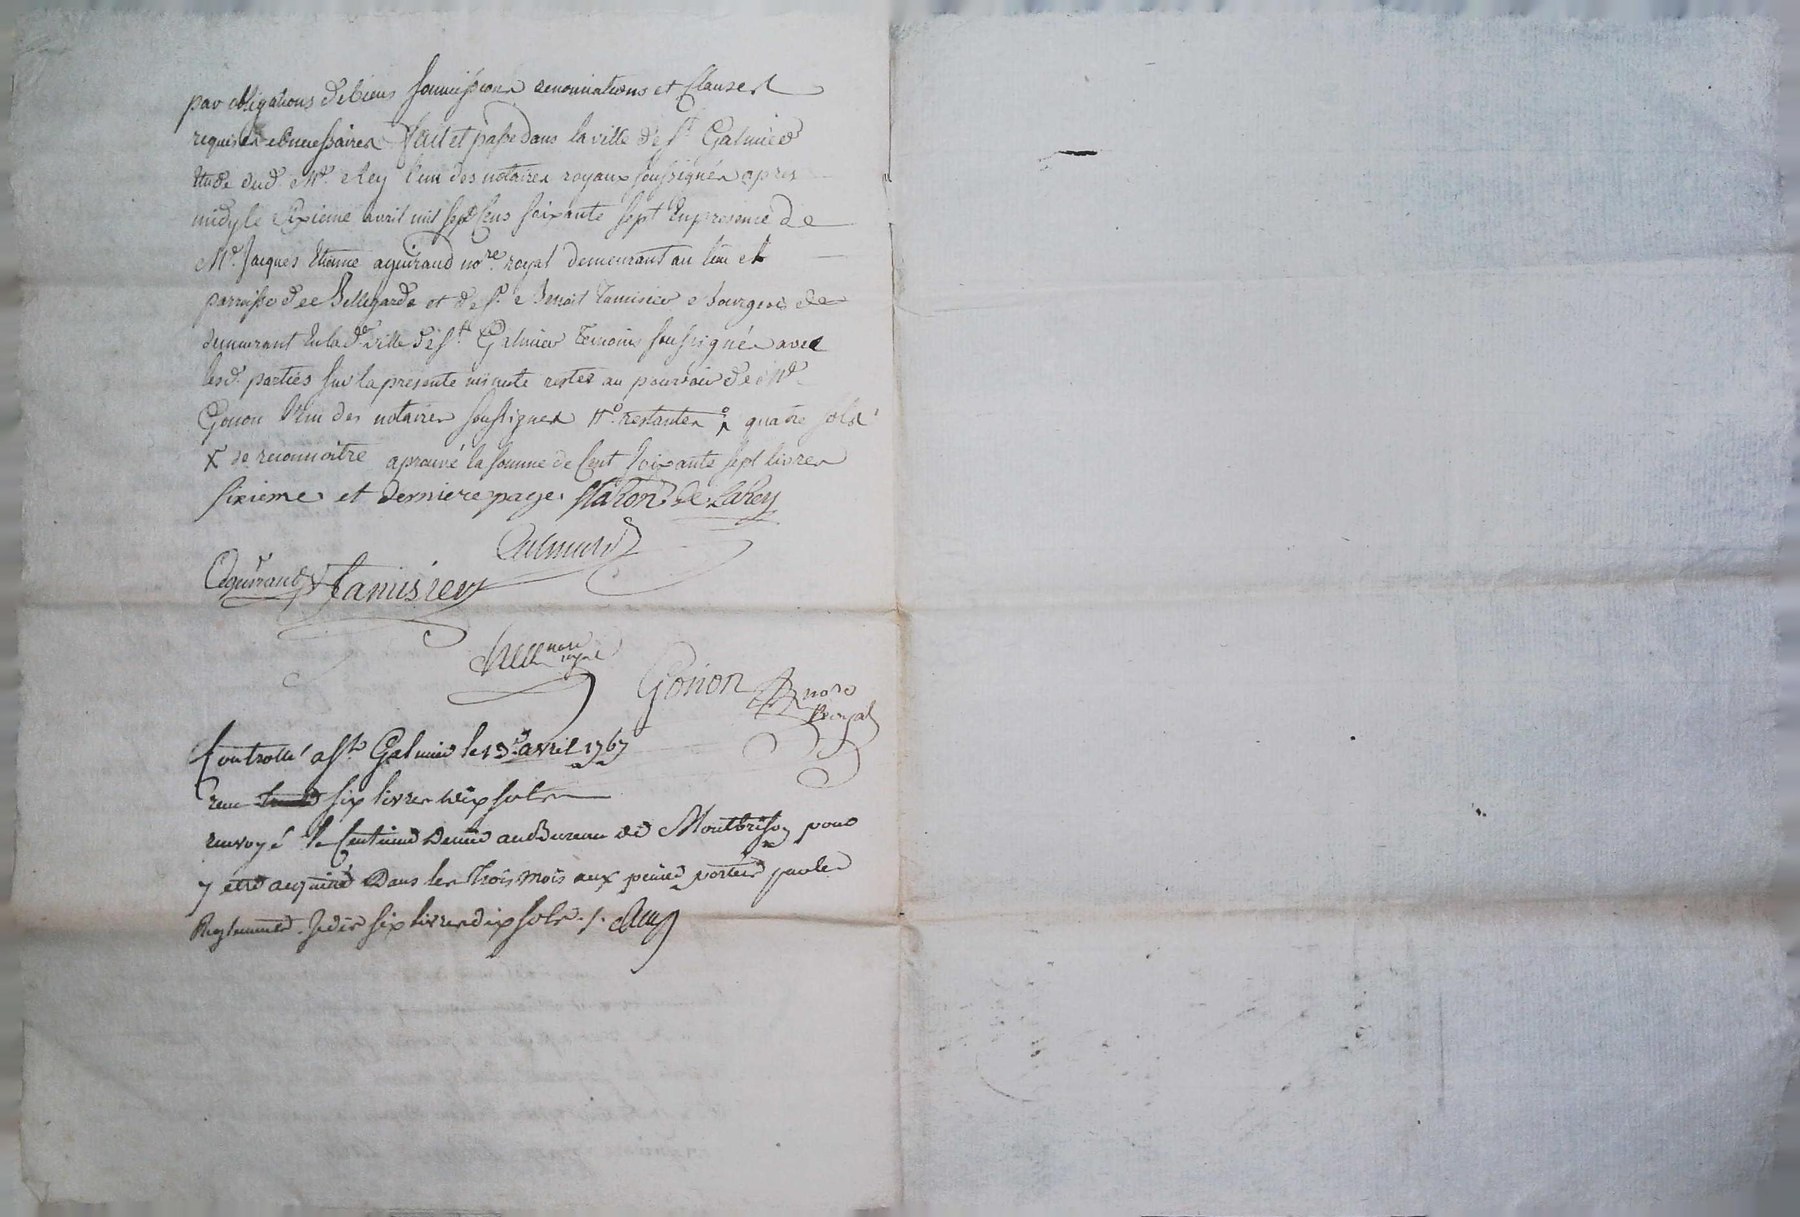 par obligations de biens soumissions renonciations et Clauses
requises et necessaires fait et passé dans la ville de St Galmier
Etude dud. Me Rey l'un des notaires royaux soussignés apres
midy le sixieme avril mil sept cens soixante sept En presence de
Me Jacques Etienne aguiraud nore royal demeurant au lieu et
parroisse de Bellegarde et de sr Benoit Tamisier Bourgeois
demeurant En lad. ville de St Galmier Temoins soussignés avec
lesd. parties sur la presente minute restée au pouvoir de Me
Gonon l'un des notaires soussignés restantes quatre sols
X de reconnoitre aprouvé la somme de Cent soixante sept livres
sixieme et derniere page. Staron de Larey
aguiraud Tamisier
nore royal
Gonon nore Royal
Controllé a St Galmier le 13e avril 1767
reçu six livres dix sols
renvoyé le Centieme Denier au Bureau de Montbrison pour
y etre acquitté Dans les trois mois aux peines portées par les
Reglements. Je dis six livres dix sols